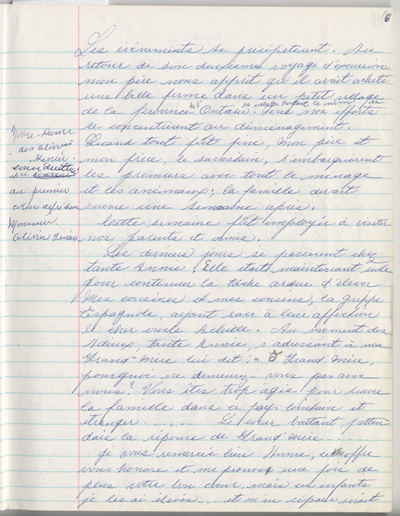 6
Les évènements se précipitèrent. Au
retour de son deuxième voyage d'excursion
mon père nous apprit qu'il avait acheté
une belle ferme dans un petit village
de la province d'Ontario. Tous nos efforts
le village portait le nom de
se concentrèrent au déménagement.
Quand tout fut fini, mon père et
mon frère, le sacristain, s'embarquèrent
les premiers avec tout le ménage
et les animaux; la famille devait
suivre une semaine après.
Cette semaine fut employée à visiter
nos parents et amis.
Les derniers jours se passèrent chez
tante Annie. Elle était maintenant seule
pour continuer la tâche ardue d'élever
mes cousines et mes cousins, la grippe
Espagnole, ayant ravi à leur affection
le cher oncle Achille. Au moment des
adieux, tante Annie, s'adressant à ma
Grand-Mère lui dit: "Grand'Mère,
pourquoi ne demeurez-vous pas avec
nous? Vous êtes trop âgée pour suivre
la famille dans ce pays lointain et
étranger....... Le cœur battant, j'atten-
dais la réponse de Grand'Mère......
Je vous remercie bien Annie, cette offre
vous honore et me prouve une fois de
plus votre bon cœur, mais ces enfants
je les ai élevés.... et m'en séparer serait
Notre-Dame
des
au premier
Monsieur